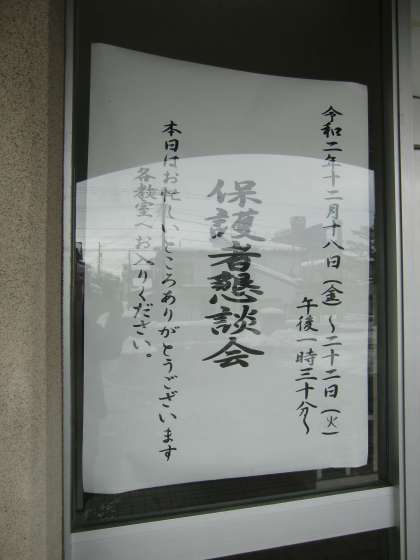 令和二年十二月十八日(金)～二十二日(火)
午後一時三十分～
保護者懇談会
本日はお忙しいところありがとうございます
各教室へお入りください。